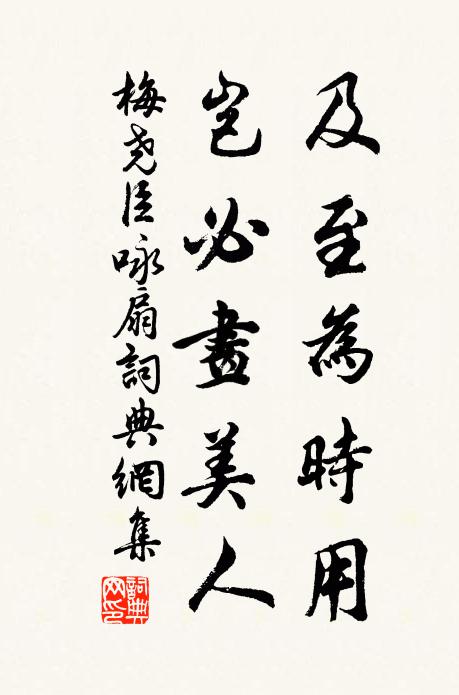 及至為時用
豈必畫美人
梅尭臣咏扇詞典網集
詞典网印